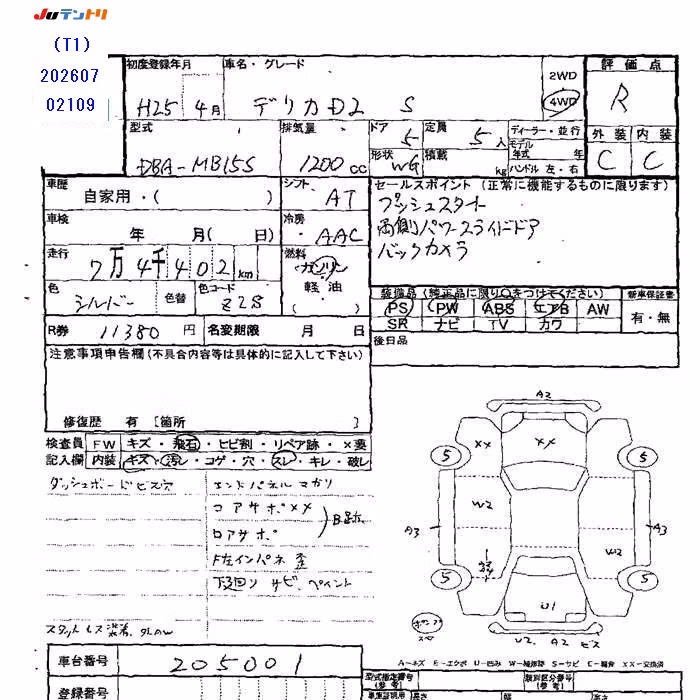 JUテントリ
(T1)
202607
02109
初度登録年月
車名・グレード
2WD
4WD
評価点
H25 4月
デリカD2 S
R
型式
排気量
ドア 5
定員 5人
ディーラー・並行
モデル年式 年
外装 内装
DBA-MB15S
1200cc
形状 WG
積載 kg
ハンドル 左・右
C C
車歴
自家用・( )
シフト AT
セールスポイント (正常に機能するものに限ります)
プッシュスタート
両側パワースライドドア
バックカメラ
車検 年 月( 日)
冷房 AAC
走行 7万4千402km
燃料 ガソリン・軽油・( )
色 シルバー 色替
色コード Z2S
装備品 (純正品に限り○をつけてください)
新車保証書
PS PW ABS エアB AW
有・無
SR ナビ TV カワ
R券 11380円
名変期限 月 日
後日品
注意事項申告欄(不具合内容等は具体的に記入して下さい)
修復歴 有 [箇所 ]
検査員記入欄
FW キズ・飛石・ヒビ割・リペア跡・×要
内装 キズ・汚レ・コゲ・穴・スレ・キレ・破レ
ダッシュボードビス穴
エンドパネルマガリ
コアサポ××
ロアサポ
B跡
F左インパネ歪
下廻りサビ、ペイント
スタッドレス装着
A2
XX XX
5 5
W2
A3 A3
W2
5 5
U1
U2. A2 ビス
A-キズ E-エクボ U-凹み W-補修跡 S-サビ C-腐食 XX-交換済
車台番号 205001
型式指定番号(参考)
類別区分番号(参考)
登録番号